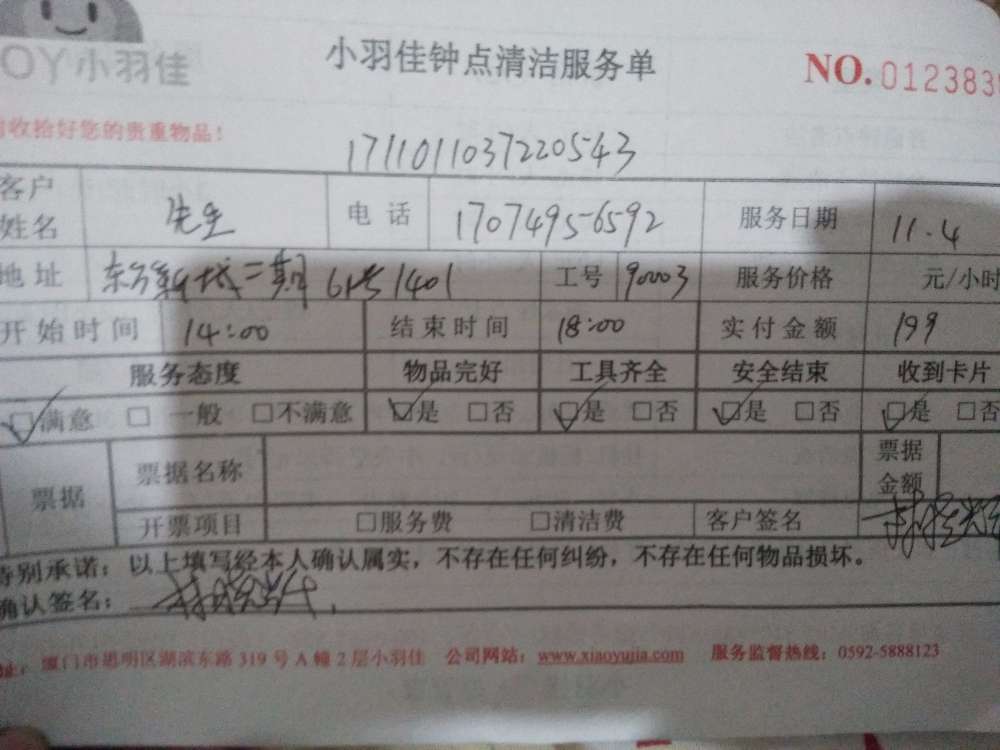 OY小羽佳
小羽佳钟点清洁服务单
NO.012383
收拾好您的贵重物品！
1711011037220543
客户姓名 先生 电话 17074956592 服务日期 11.4
地址 东方新城二期 61号1401 工号 90003 服务价格 元/小时
开始时间 14:00 结束时间 18:00 实付金额 199
服务态度 物品完好 工具齐全 安全结束 收到卡片
☑满意 □一般 □不满意 ☑是 □否 ☑是 □否 ☑是 □否 ☑是 □否
票据 票据名称 票据金额
开票项目 □服务费 □清洁费 客户签名
特别承诺：以上填写经本人确认属实，不存在任何纠纷，不存在任何物品损坏。
确认签名：
厦门市思明区湖滨东路319号A幢2层小羽佳 公司网站：www.xiaoyujia.com 服务监督热线：0592-5888123